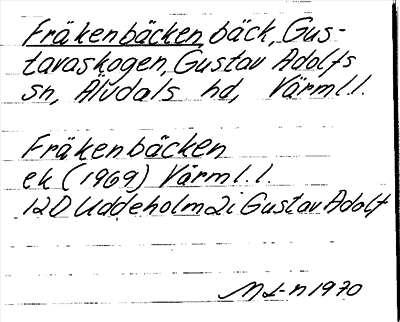 Fräkenbäcken, bäck, Gus-
tavaskogen, Gustav Adolfs
sn, Älvdals hd, Värml.l.
Fräkenbäcken
ek (1969) Värml.l.
12D Uddeholm 2i Gustav Adolf
1970